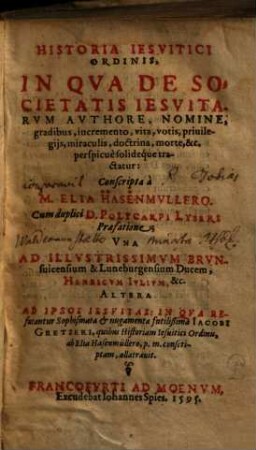 HISTORIA IESVITICI
ORDINIS,
IN QVA DE SO-
CIETATIS IESVITA-
RVM AVTHORE, NOMINE,
gradibus, incremento, vita, votis, priuile-
gijs, miraculis, doctrina, morte, &c.
perspicuè solidéque tra-
ctatur:
Conscripta à
M. ELIA HASENMVLLERO.
Cum duplici D. POLYCARPI LYSERI
Præfatione
VNA
AD ILLVSTRISSIMVM BRVN-
suicensium & Luneburgensium Ducem,
HENRICVM IVLIVM, &c.
ALTERA
AD IPSOS IESVITAS: IN QVA RE-
futantur Sophismata & nugamenta futilissima IACOBI
GRETZERI, quibus Historiam Iesuitici Ordinis,
ab Elia Hasenmüllero, p. m. conscri-
ptam, allatrauit.
FRANCOFVRTI AD MOENVM,
Excudebat Iohannes Spies. 1595.